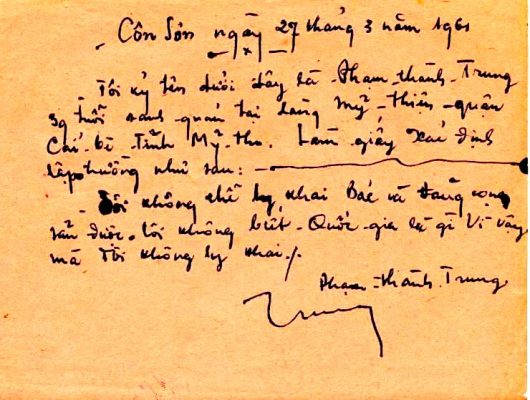 Côn Sơn ngày 27 tháng 3 năm 1961
Tôi ký tên dưới đây là Phạm-thành-Trung
39 tuổi sanh quán tại làng Mỹ-thiện-quận
Cái-bè-Tỉnh Mỹ-tho. Làm giấy xác định
lập trường như sau:
Tôi không thể ly khai Bác và Đảng cộng
sản được. tôi không biết Quốc-gia là gì Vì vậy
mà tôi không ly khai./.
Phạm-thành-Trung
Trung